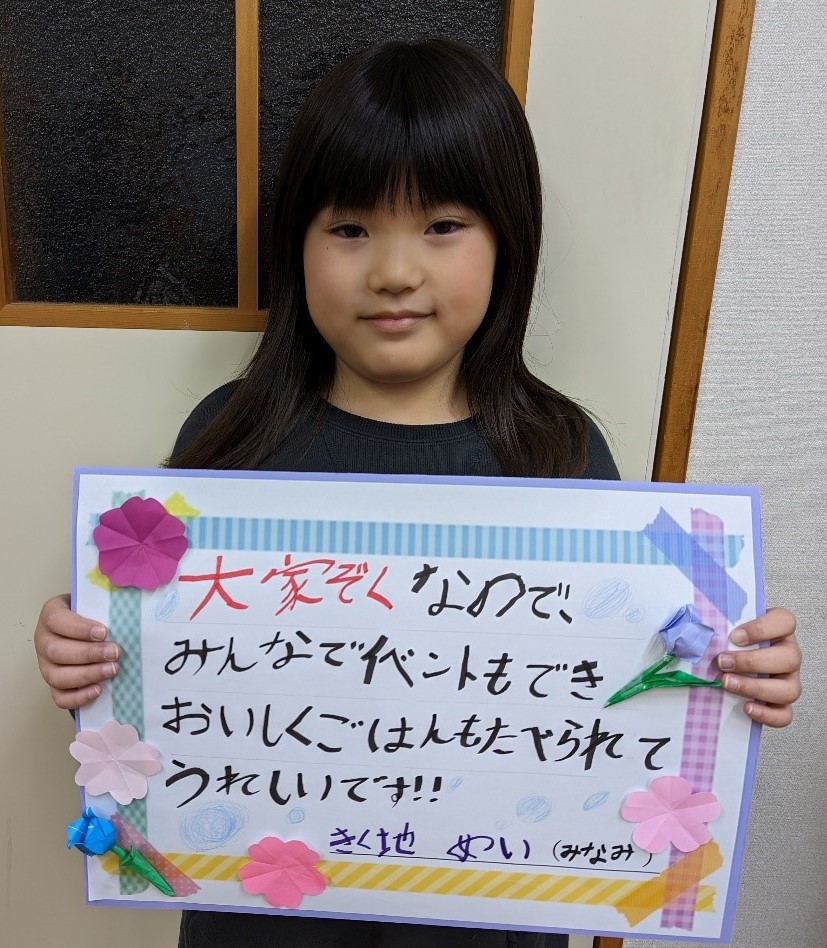 大家ぞくなので、
みんなでイベントもでき
おいしくごはんもたべられて
うれしいです!!
きく地 めい (みなみ)